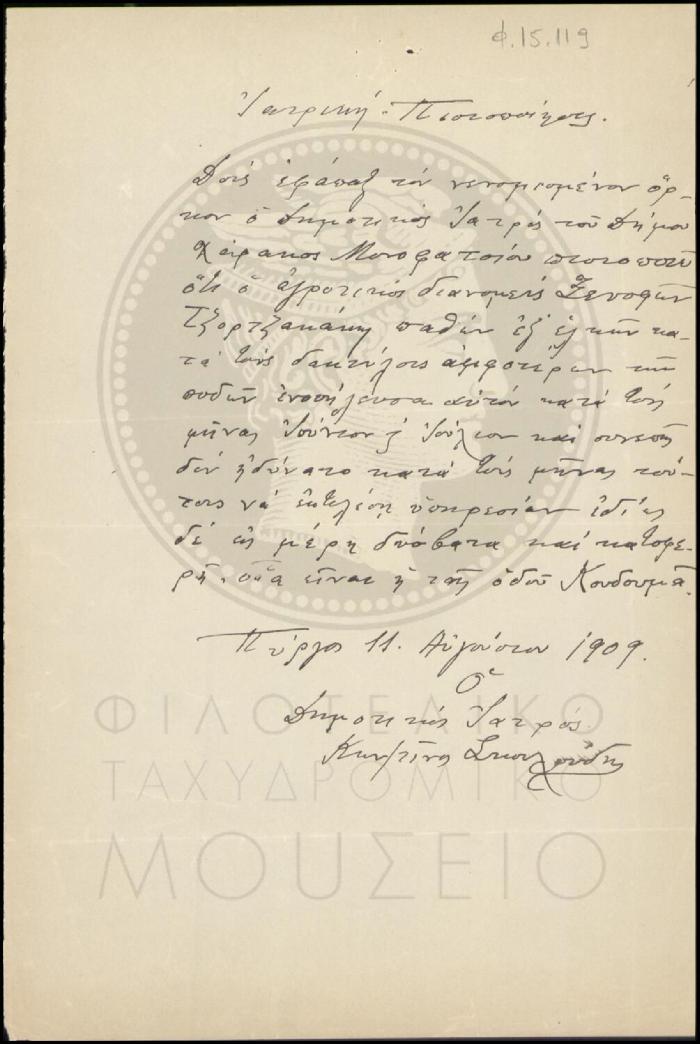 Φ.15.119
Ἰατρική Πιστοποίησις.
Δούς ἐφάπαξ τόν νενομισμένον ὅρ-
κον ὁ Δημοτικός Ἰατρός τοῦ Δήμου
Χάρακος Μονοφατσίου πιστοποιῶ
ὅτι ὁ ἀγροτικός διανομεύς Ξενοφῶν
Τζορτζακάκη παθών ἐξ ἑλκῶν κα-
τά τούς δακτύλους ἀμφοτέρων τῶν
ποδῶν ἐνοσήλευσα αὐτόν κατά τούς
μῆνας Ἰούνιον ἤ Ἰούλιον καί συνεπῶς
δέν ἠδύνατο κατά τούς μῆνας τού-
τους νά ἐκτελέσῃ ὑπηρεσίαν ἰδίως
δέ εἰς μέρη δύσβατα καί κατωφε-
ρῆ, οἵα εἶναι ἡ τῆς ὁδοῦ Κουδουμᾶ.
Πύργος 11. Αὐγούστου 1909.
Ὁ
Δημοτικός Ἰατρός
Κων/τῖνος
ΦΙΛΟΤΕΛΙΚΟ
ΤΑΧΥΔΡΟΜΙΚΟ
ΜΟΥΣΕΙΟ